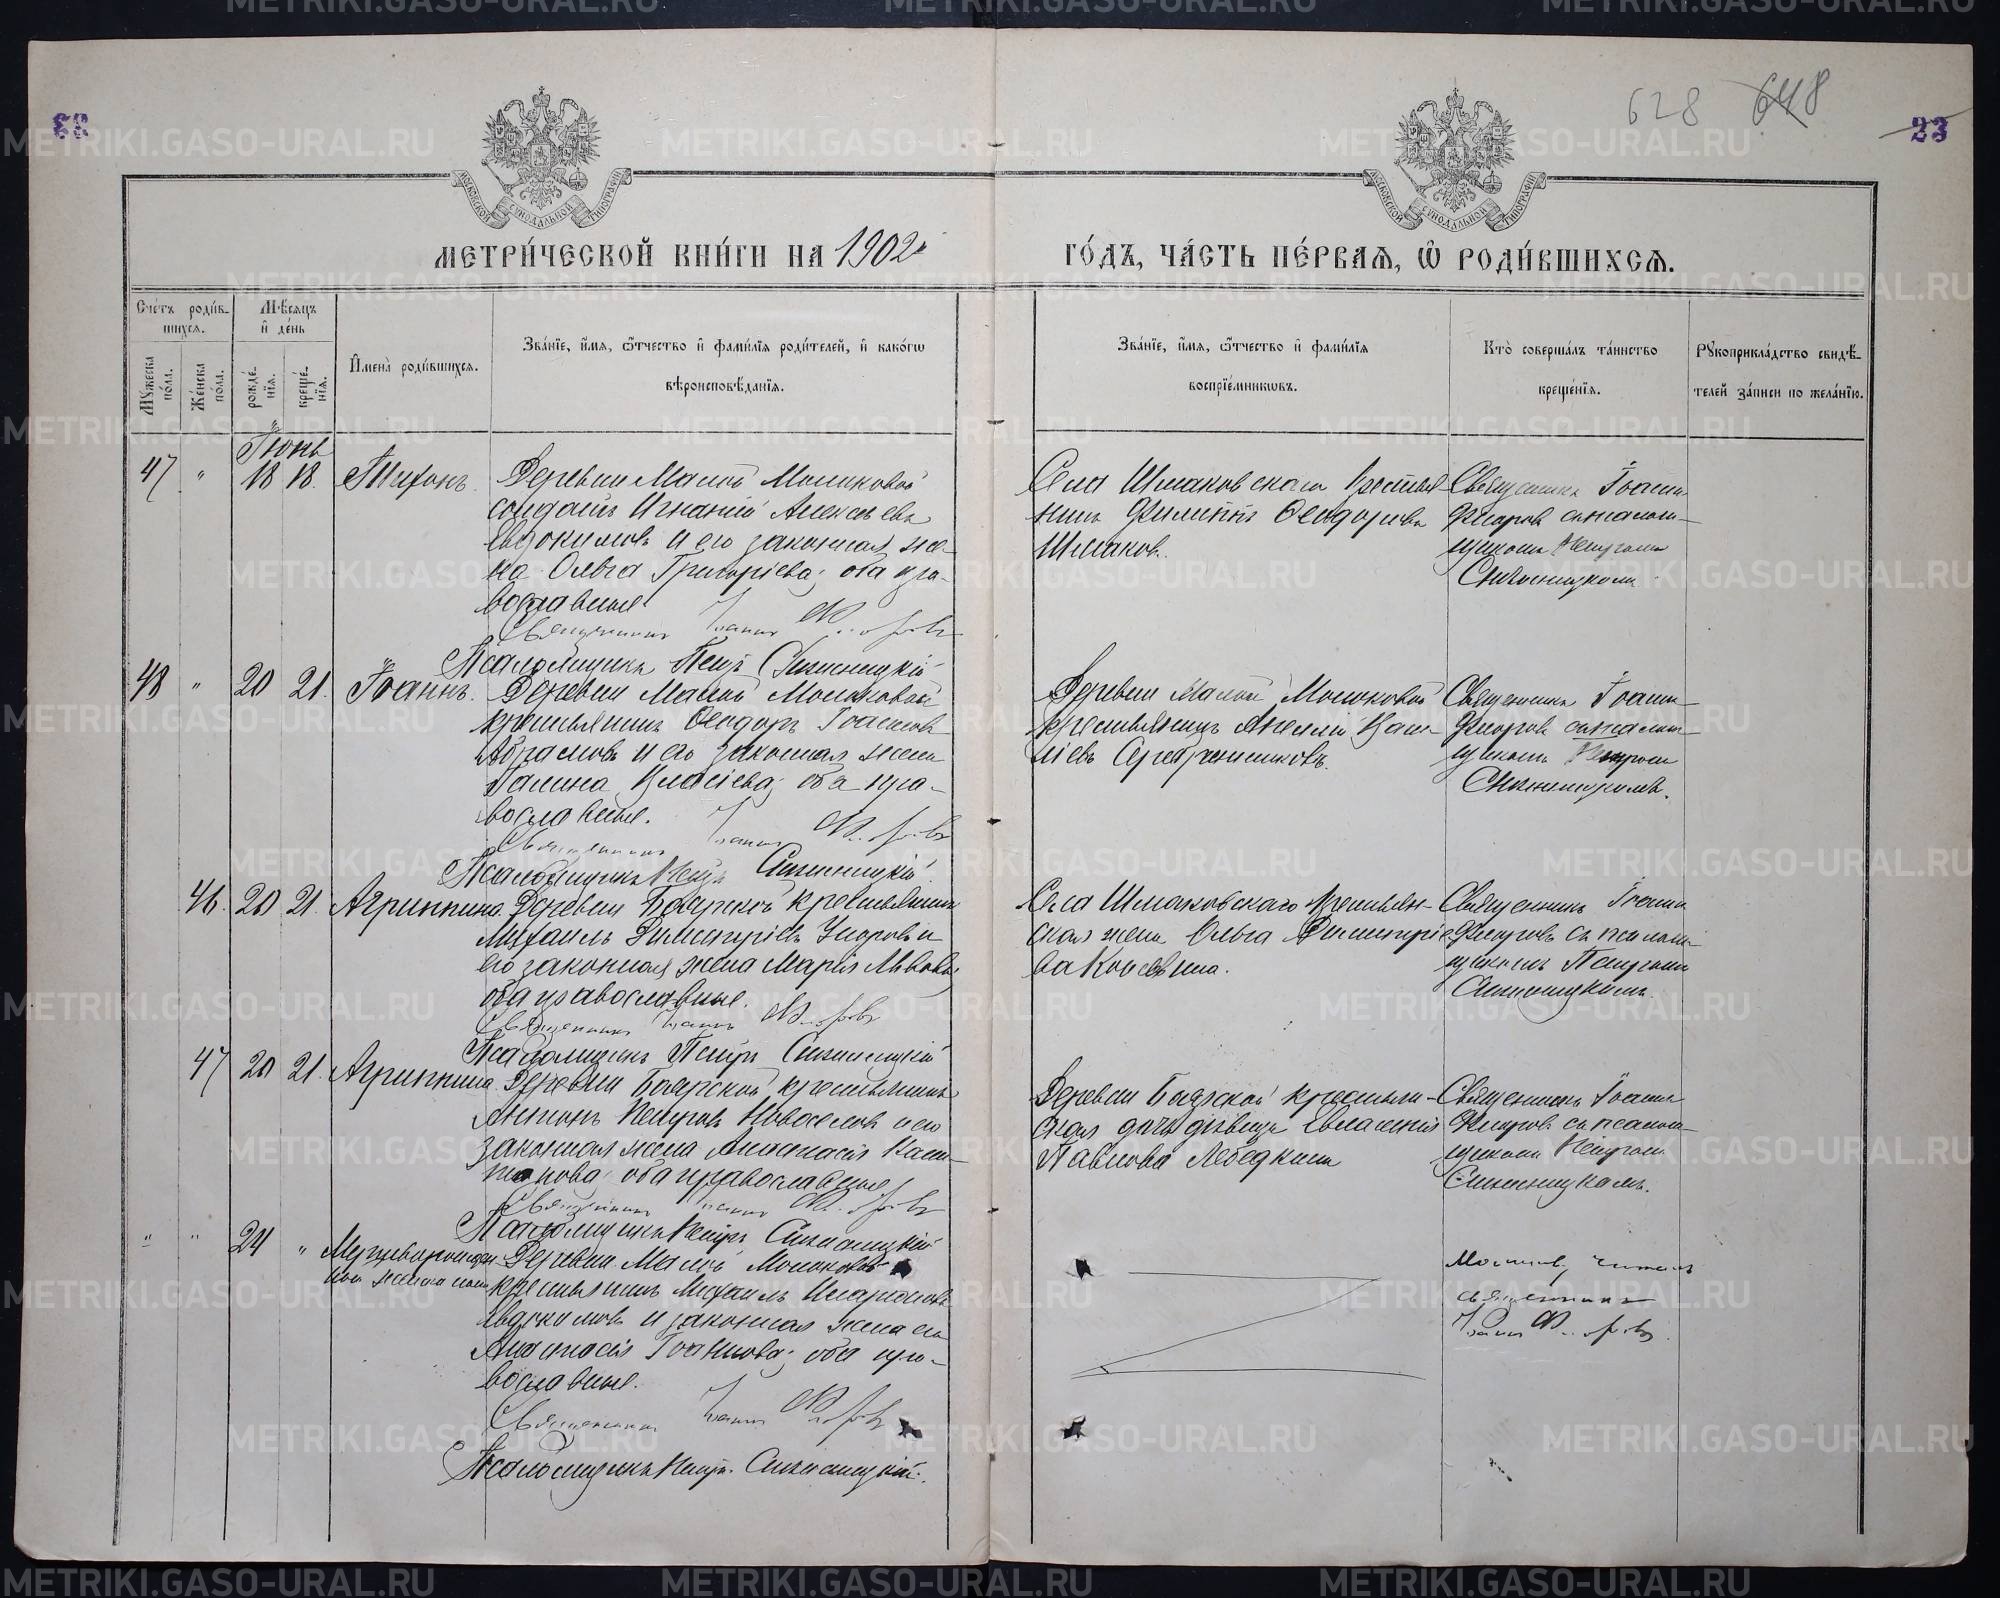 METRIKI.GASO-URAL.RU
628 648
23
23
МОСКОВСКОЙ СѴНОДАЛЬНОЙ ТИПОГРАФІИ
МОСКОВСКОЙ СѴНОДАЛЬНОЙ ТИПОГРАФІИ
МЕТРИ́ЧЕСКОЙ КНИ́ГИ НА 1902
ГО́ДЪ, ЧА́СТЬ ПЕ́РВАѦ, Ѡ҆ РОДИ́ВШИХСѦ.
Сче́тъ роди́в-
шихсѧ.
Мꙋ́жеска по́ла.
Же́нска по́ла.
Мѣ́сѧцъ и҆ де́нь
рожде́-нїѧ.
креще́-нїѧ.
И҆мена̀ роди́вшихсѧ.
Зва́нїе, и҆́мѧ, ѻ҆́тчество и҆ фами́лїѧ роди́телей, и҆ како́гѡ
вѣроисповѣ́данїѧ.
Зва́нїе, и҆́мѧ, ѻ҆́тчество и҆ фами́лїѧ
воспрїе́мникѡвъ.
Кто̀ соверша́лъ та́инство
креще́нїѧ.
Рꙋкоприкла́дство свидѣ́-
телей за́писи по жела́нїю.
Іюнь
47 " 18 18. Тихонъ.
Деревни Малой Молоковой
солдатъ Игнатій Алексѣевъ
Евдокимовъ и его законная же-
на Ольга Григоріева; оба пра-
вославные.
Священникъ Іоаннъ Флоровъ
Псаломщикъ Петръ
Села Шмаковскаго крестья-
нинъ Филиппъ Ѳеодоровъ
Шмаковъ.
Священникъ Іоаннъ
Флоровъ съ псалом-
щикомъ Петромъ
48 " 20 21. Іоаннъ.
Деревни Малой Молоковой
крестьянинъ Ѳеодоръ Іоанновъ
Абрамовъ и его законная жена
Галина Власіева; оба пра-
вославные.
Священникъ Іоаннъ Флоровъ
Псаломщикъ Петръ
Деревни Малой Молоковой
крестьянинъ
Серебренниковъ.
Священникъ Іоаннъ
Флоровъ съ псалом-
щикомъ Петромъ
46. 20 21. Агриппина.
Деревни Боярской крестьянинъ
Михаилъ Димитріевъ и
его законная жена Марія Львова;
оба православные.
Священникъ Іоаннъ Флоровъ
Псаломщикъ Петръ
Села Шмаковскаго крестьян-
ская жена Ольга Димитріе-
ва
Священникъ Іоаннъ
Флоровъ съ псалом-
щикомъ Петромъ
47 20 21. Агриппина.
Деревни Боярской крестьянинъ
Антонъ Петровъ Новоселовъ и его
законная жена Анастасія Капи-
тонова; оба православные
Священникъ Іоаннъ Флоровъ
Псаломщикъ Петръ
Деревни Боярской крестьян-
ская дочь дѣвица
Павлова Лебедкина
Священникъ Іоаннъ
Флоровъ съ псалом-
щикомъ Петромъ
" " 24 " Мертворожден-
ный женска пола
Деревни Малой Молоковой
крестьянинъ Михаилъ Иларіоновъ
Евдокимовъ и законная жена его
Анастасія Іоаннова; оба пра-
вославные.
Священникъ Іоаннъ Флоровъ
Псаломщикъ Петръ
Молитву читалъ
священникъ
Іоаннъ Флоровъ.